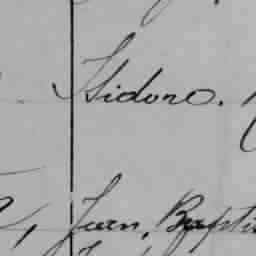 Isidoro.
Juan, Baptis